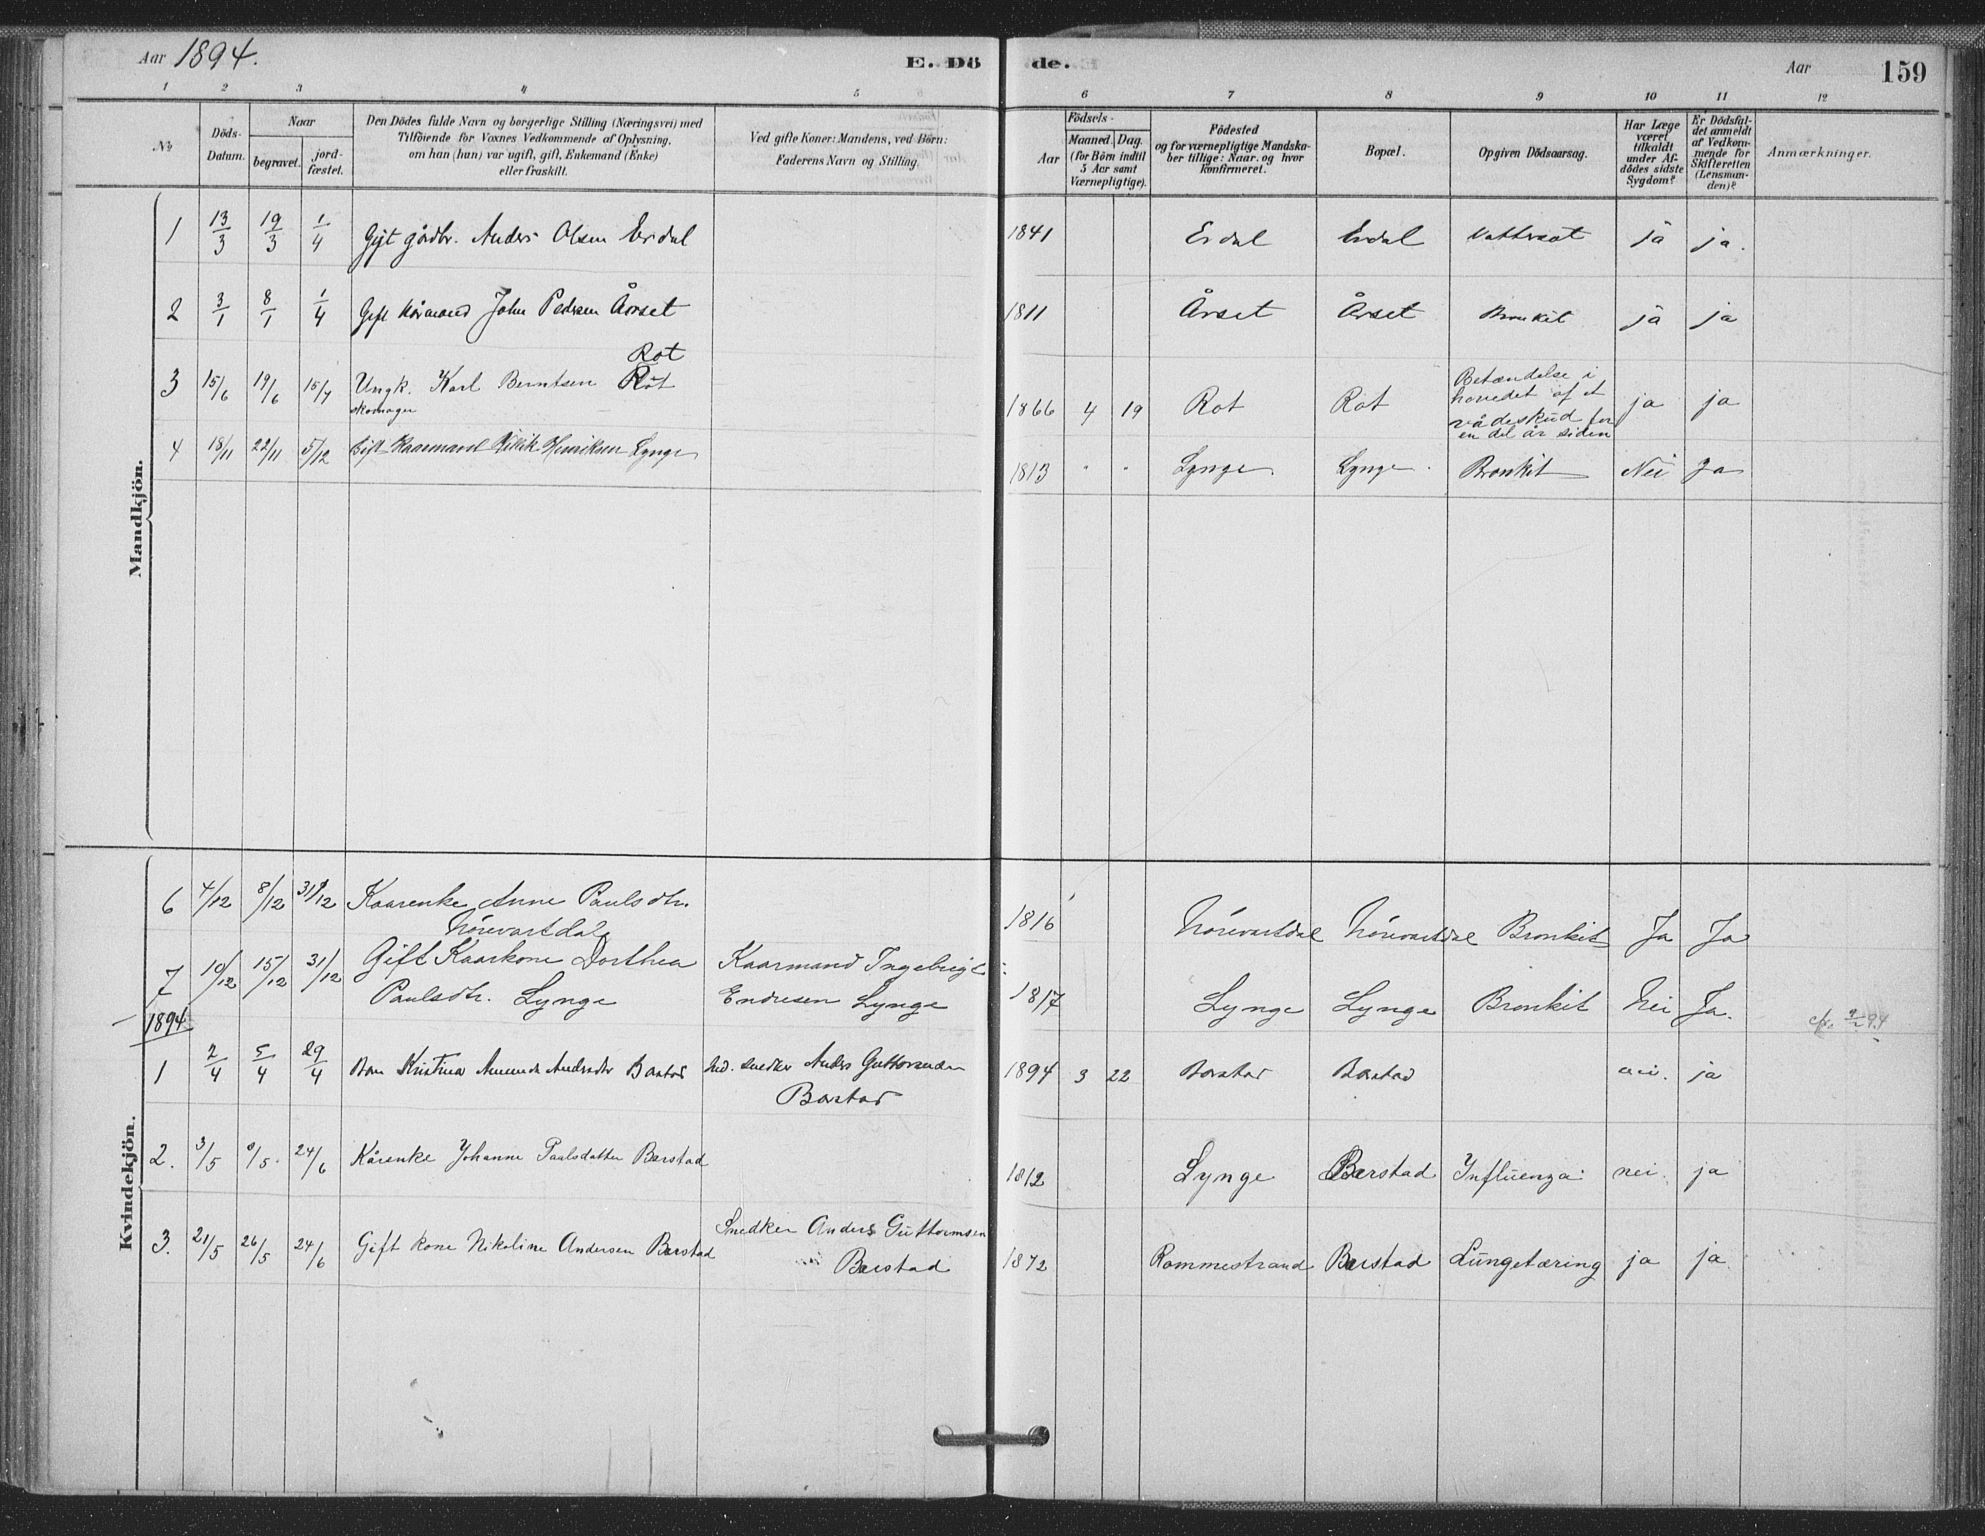 Aar 1894. E. Dö de. Aar 159
1 2 3 4 5 6 7 8 9 10 11 12
№ Döds-Datum. Naar begravet. jord-fæstet. Den Dödes fulde Navn og borgerlige Stilling (Næringsvei) med Tilföiende for Voxnes Vedkommende af Oplysning, om han (hun) var ugift, gift, Enkemand (Enke) eller fraskilt. Ved gifte Koner: Mandens, ved Börn: Faderens Navn og Stilling. Födsels- Aar Maaned. Dag. (for Börn indtil 5 Aar samt Værnepligtige). Födested og for værnepligtige Mandskaber tillige: Naar og hvor konfirmeret. Bopæl. Opgiven Dödsaarsag. Har Læge været tilkaldt under Afdödes sidste Sygdom? Er Dödsfaldet anmeldt af Vedkommende for Skifteretten (Lensmanden)? Anmærkninger.
Mandkjön.
1 13/3 19/3 1/4 Gift gårdbr. Anders Olsen Erdal 1841 Erdal Erdal Vattersot ja ja.
2 3/1 8/1 1/4 Gift kårmand John Pedersen Årset 1811 Årset Årset Bronkit ja ja
Rot
3 15/6 19/6 15/7 Ungk. Karl Berntsen Rot 1866 4 19 Rot Rot Betændelse i
skomager hovedet af et ja ja
vådeskud for
en del år siden
4 18/11 22/11 5/12 Gift Kaarmand Henriksen Lynge 1813 " " Lynge. Lynge. Bronkit Nei Ja
Kvindekjön.
6 4/12 8/12 31/12 Kaarenke Anne Paulsdtr. 1816 Nörevartdal Nörevartdal Bronkit Ja Ja
Nörevartdal
7 10/12 15/12 31/12 Gift Kaarkone Dorthea Kaarmand Ingebrigt
Paulsdtr. Lynge Endresen Lynge 1817 Lynge Lynge Bronkit Nei Ja.
1894
1 2/4 5/4 29/4 Barn Kristina Andersdtr Barstad Ind. snedker Anders Guttormsen 1894 3 22 Barstad Barstad nei. ja
Barstad
2. 3/5 /5. 24/6 Kårenke Johanne Paulsdatter Barstad 1812 Lynge Barstad Influenza. nei. ja
3. 21/5 26/5 24/6 Gift kone Nikoline Andersen Barstad Snedker Anders Guttormsen 1872 Rommestrand Barstad Lungetæring ja ja
Barstad